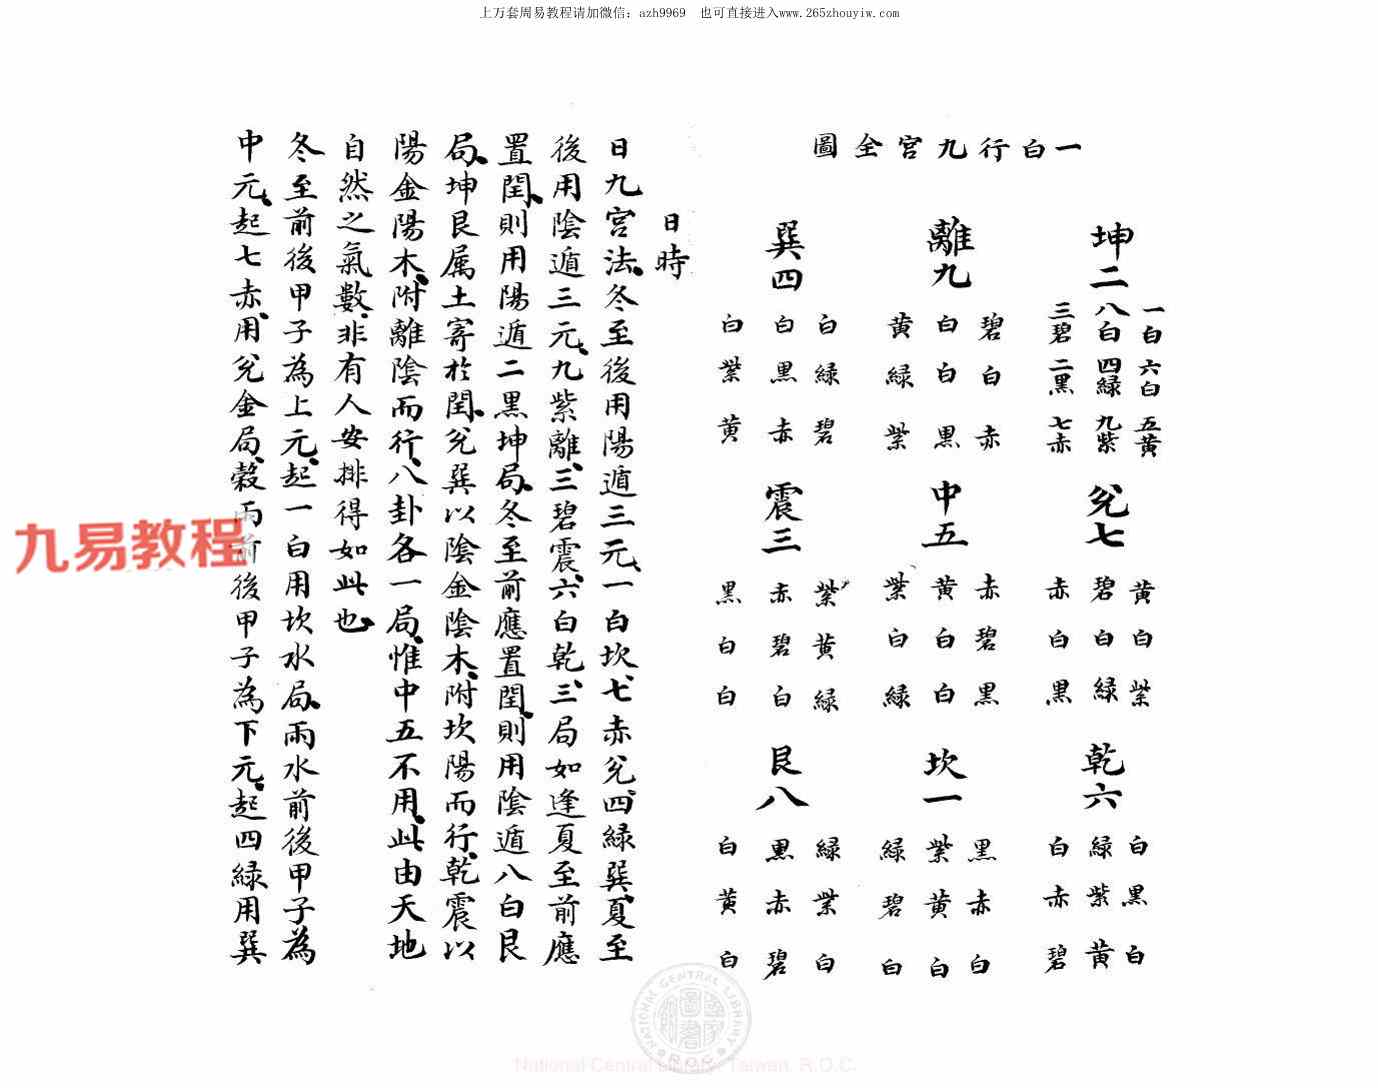 上万套周易教程请加微信：azh9969　也可直接进入www.265zhouyiw.com
一白行九宮全圖
坤二
一白 六白 五黄
八白 四緑 九紫
三碧 二黑 七赤
兊七
黄 白 紫
碧 白 緑
赤 白 黑
乾六
白 黑 白
緑 紫 黄
白 赤 碧
離九
碧 白 赤
白 白 黑
黄 緑 紫
中五
赤 碧 黑
黄 白 白
紫 白 緑
坎一
黑 赤 白
紫 黄 白
緑 碧 白
巽四
白 緑 碧
白 黑 赤
白 紫 黄
震三
紫 黄 緑
赤 碧 白
黑 白 白
艮八
緑 紫 白
黑 赤 碧
白 黄 白
日時
日九宮法、冬至後用陽遁三元、一白坎、七赤兊、四緑巽、夏至
後用陰遁三元、九紫離、三碧震、六白乾、三局如逢夏至前應
置閏、則用陽遁二黑坤局、冬至前應置閏、則用陰遁八白艮
局、坤艮属土寄於閏、兊巽以陰金陰木、附坎陽而行、乾震以
陽金陽木、附離陰而行、八卦各一局、惟中五不用、此由天地
自然之氣數、非有人安排得如此也、
冬至前後甲子為上元、起一白用坎水局、雨水前後甲子為
中元、起七赤、用兊金局、榖雨前後甲子為下元、起四緑用巽
九易教程
NATIONAL CENTRAL LIBRARY
R.O.C.
National Central Library, Taiwan, R.O.C.